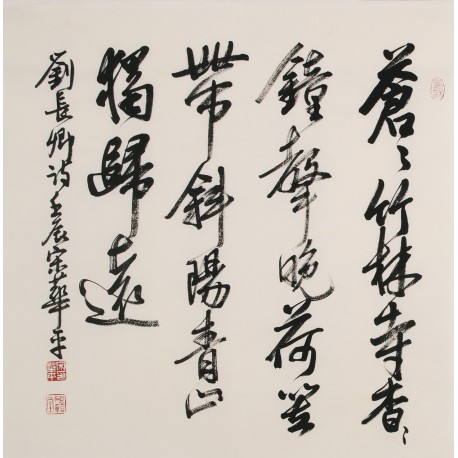 蒼〻竹林寺杳〻
鐘聲晚荷笠
帶斜陽青山
獨歸遠
劉長卿詩壬辰宋華平